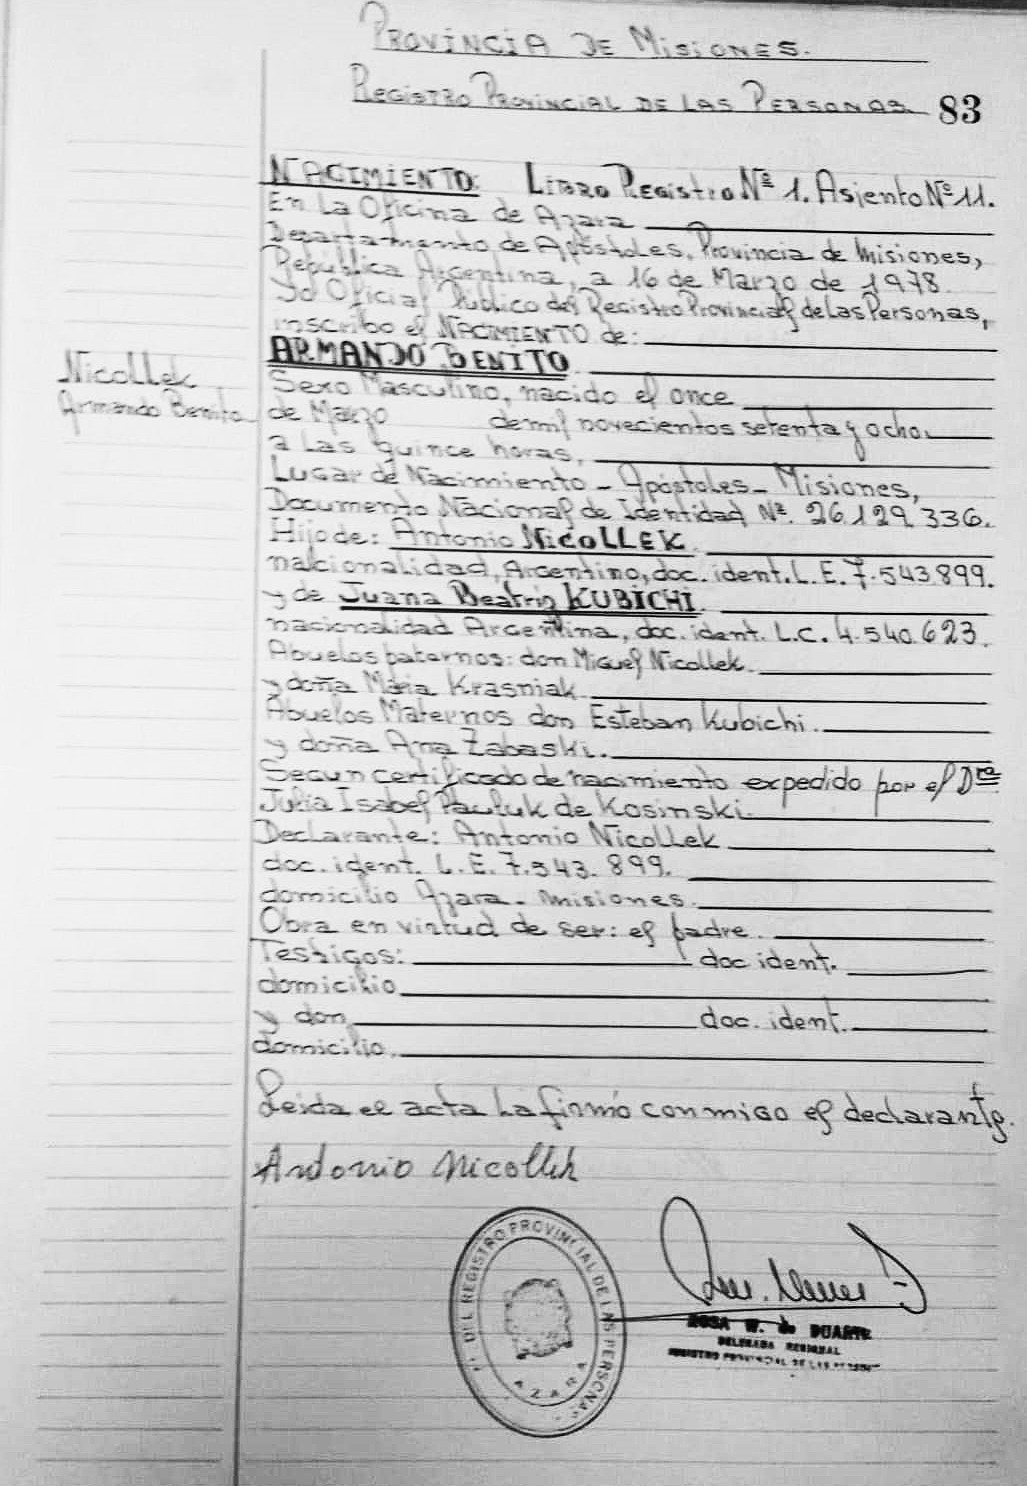 PROVINCIA DE MISIONES.
REGISTRO PROVINCIAL DE LAS PERSONAS. 83
NACIMIENTO: LIBRO REGISTRO Nº 1. Asiento Nº 11.
En La Oficina de Azara
Departamento de Apóstoles, Provincia de Misiones,
República Argentina, a 16 de Marzo de 1978.
Yo Oficial Público del Registro Provincial de Las Personas,
inscribo el NACIMIENTO de:
ARMANDO BENITO
Nicollek
Armando Benito
Sexo Masculino, nacido el once
de Marzo de mil novecientos setenta y ocho.
a Las quince horas,
Lugar de Nacimiento - Apóstoles - Misiones,
Documento Nacional de Identidad Nº. 26.129.336.
Hijo de: Antonio NICOLLEK.
nacionalidad, Argentino, doc. ident. L.E. 7.543.899.
y de Juana Beatriz KUBICHI.
nacionalidad Argentina, doc. ident. L.C. 4.540.623.
Abuelos paternos: don Miguel Nicollek.
y doña María Krasniak
Abuelos Maternos don Esteban Kubichi.
y doña Ana Zabaski.
Segun certificado de nacimiento expedido por el Dra
Julia Isabel Pauluk de Kosinski.
Declarante: Antonio Nicollek
doc. ident. L.E. 7.543.899.
domicilio Azara - Misiones.
Obra en virtud de ser: el padre.
Testigos: doc ident.
domicilio
y don doc. ident.
domicilio.
Leida el acta La firmó conmigo el declarante.
Antonio Nicollek
DEL REGISTRO PROVINCIAL DE LAS PERSONAS
AZARA
ROSA W. de DUARTE
DELEGADA REGIONAL
REGISTRO PROVINCIAL DE LAS PERSONAS